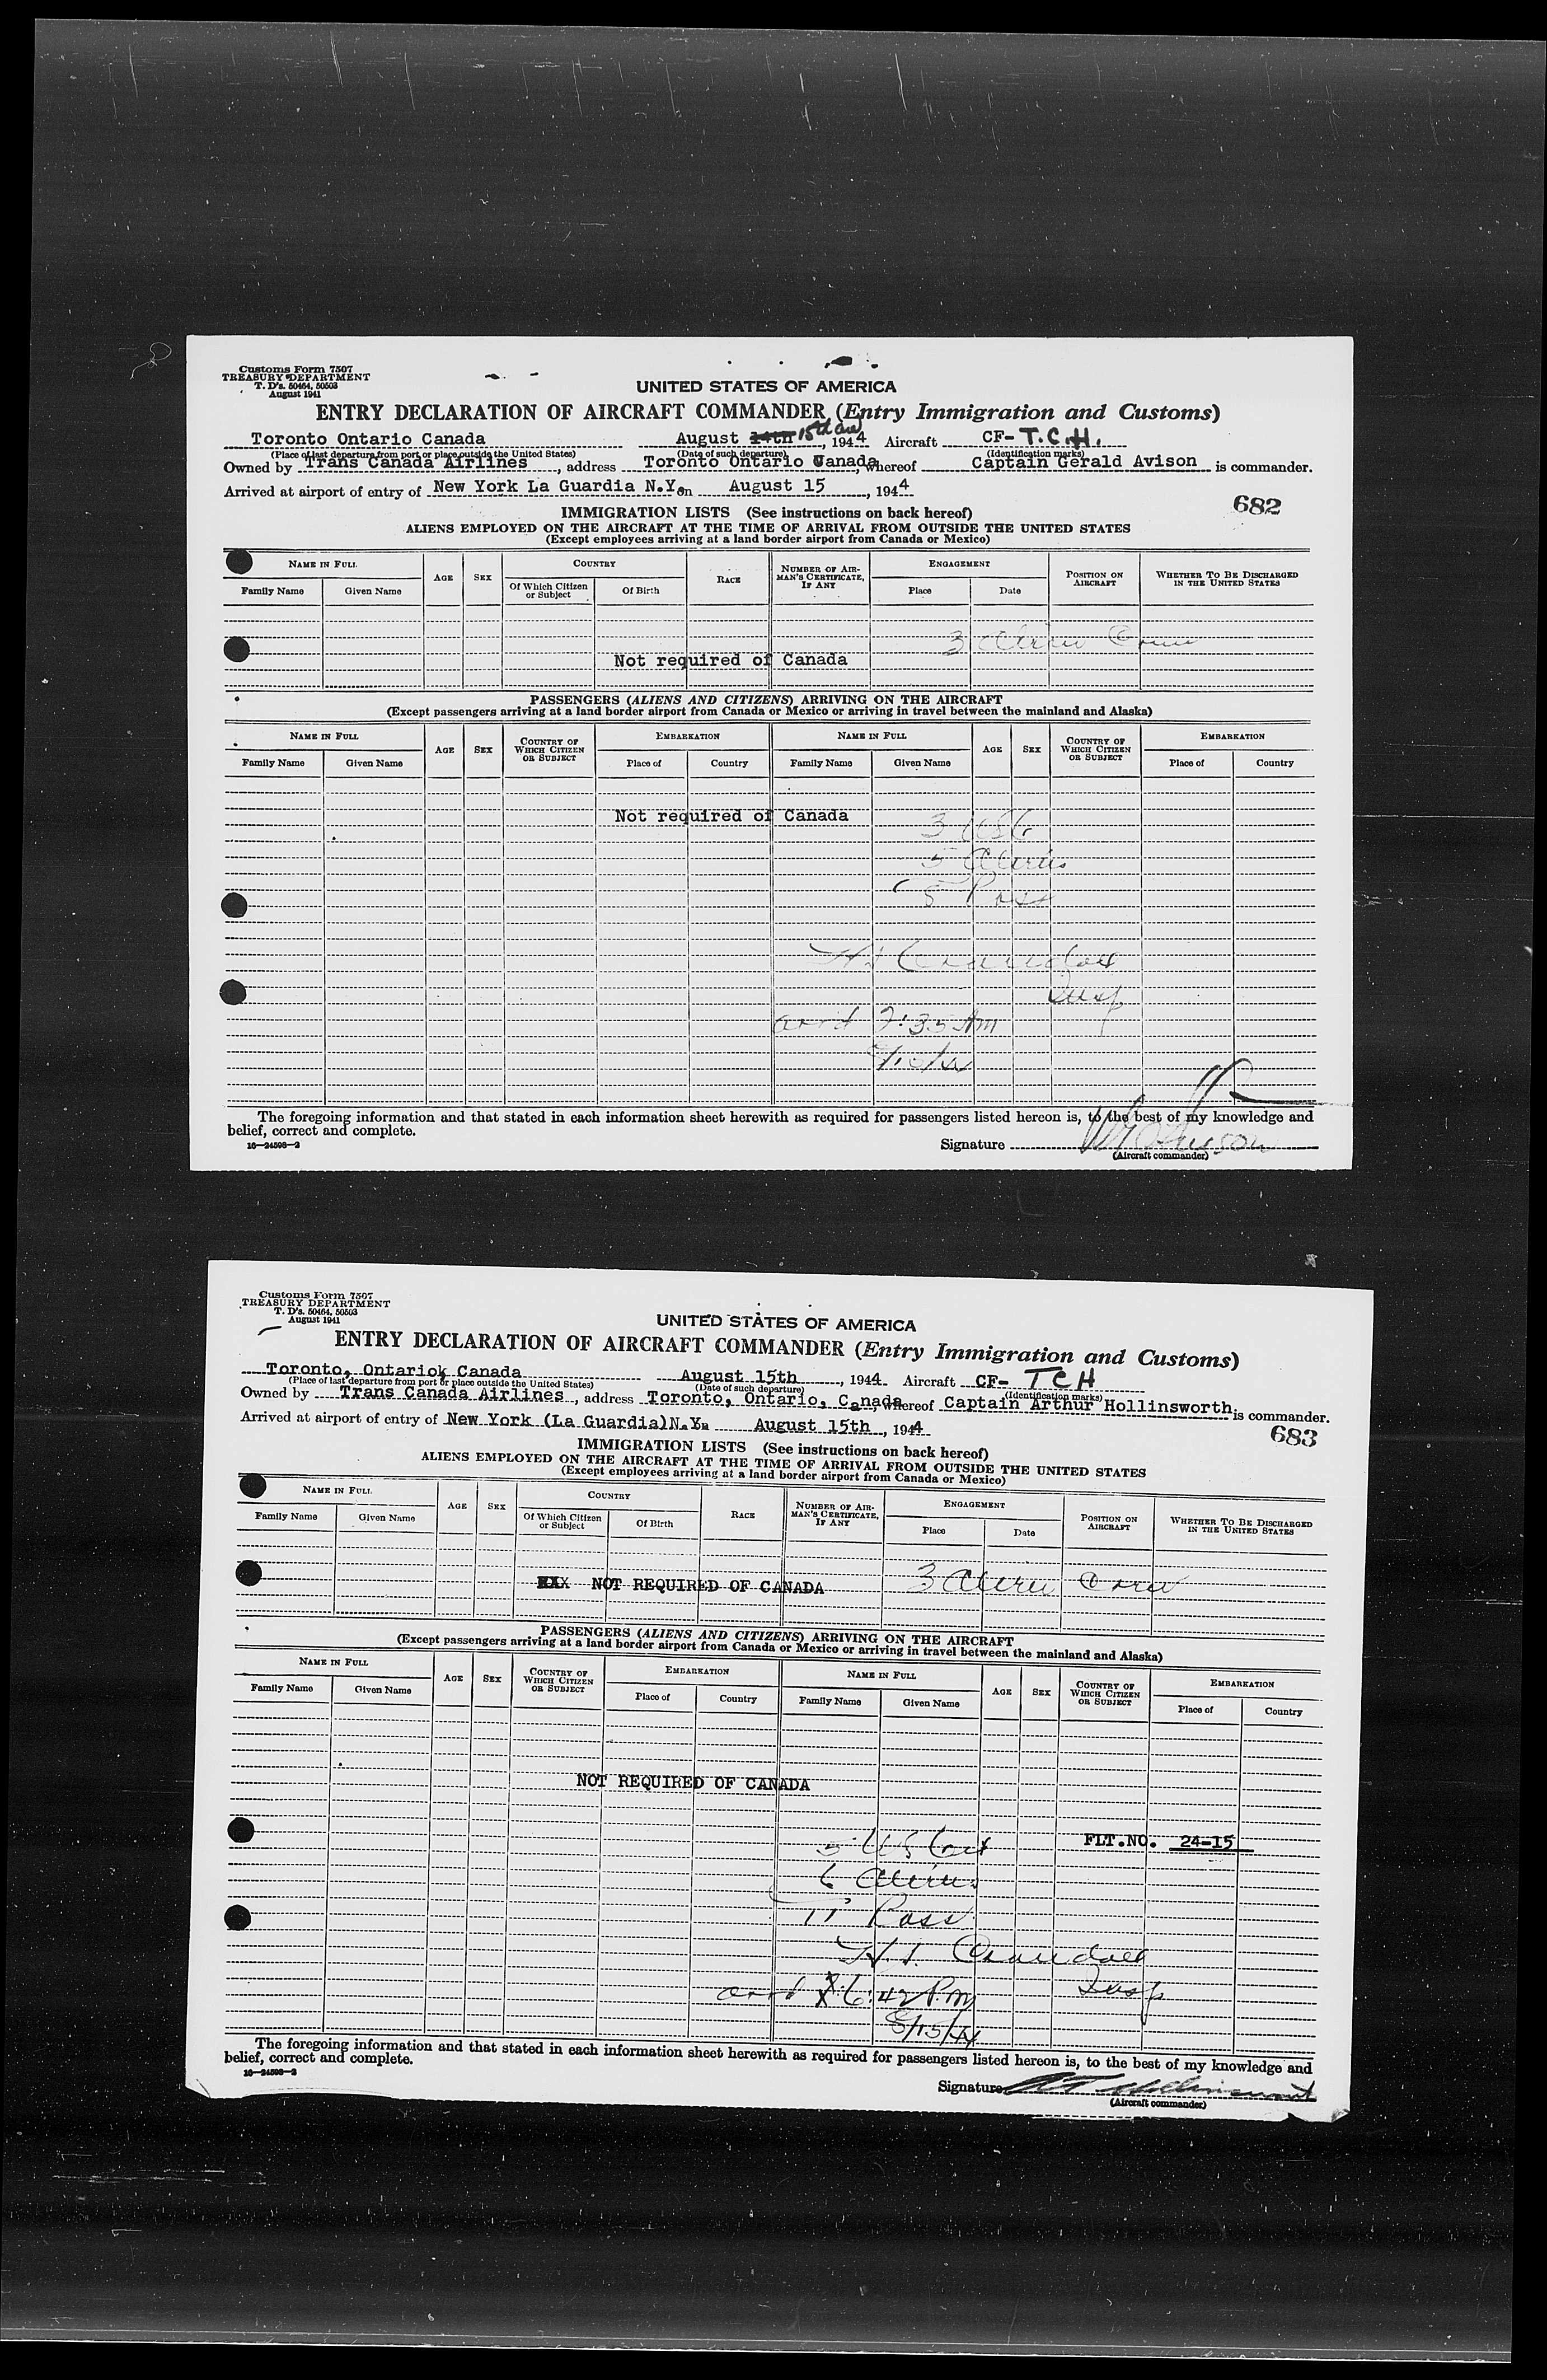 Customs Form 7507
TREASURY DEPARTMENT
T. D's. 50464, 50503
August 1941
UNITED STATES OF AMERICA
ENTRY DECLARATION OF AIRCRAFT COMMANDER (Entry Immigration and Customs)
Toronto Ontario Canada August 14th 15th, 1944 Aircraft CF- T.C.H.
(Place of last departure from port or place outside the United States) (Date of such departure) (Identification marks)
Owned by Trans Canada Airlines, address Toronto Ontario Canada, whereof Captain Gerald Avison is commander.
Arrived at airport of entry of New York La Guardia N.Y. on August 15, 1944
682
IMMIGRATION LISTS (See instructions on back hereof)
ALIENS EMPLOYED ON THE AIRCRAFT AT THE TIME OF ARRIVAL FROM OUTSIDE THE UNITED STATES
(Except employees arriving at a land border airport from Canada or Mexico)
NAME IN FULL AGE SEX COUNTRY RACE NUMBER OF AIRMAN'S CERTIFICATE, IF ANY ENGAGEMENT POSITION ON AIRCRAFT WHETHER TO BE DISCHARGED IN THE UNITED STATES
Family Name Given Name Of Which Citizen or Subject Of Birth Place Date
3 Alien Crew
Not required of Canada
PASSENGERS (ALIENS AND CITIZENS) ARRIVING ON THE AIRCRAFT
(Except passengers arriving at a land border airport from Canada or Mexico or arriving in travel between the mainland and Alaska)
NAME IN FULL AGE SEX COUNTRY OF WHICH CITIZEN OR SUBJECT EMBARKATION NAME IN FULL AGE SEX COUNTRY OF WHICH CITIZEN OR SUBJECT EMBARKATION
Family Name Given Name Place of Country Family Name Given Name Place of Country
Not required of Canada
3 USC
5 Aliens
8 Pass
H.I. Crandall
Insp
arrd 2:35 AM
8/15/44
The foregoing information and that stated in each information sheet herewith as required for passengers listed hereon is, to the best of my knowledge and
belief, correct and complete.
16—24598-2
Signature
(Aircraft commander)
Customs Form 7507
TREASURY DEPARTMENT
T. D's. 50464, 50503
August 1941
UNITED STATES OF AMERICA
ENTRY DECLARATION OF AIRCRAFT COMMANDER (Entry Immigration and Customs)
Toronto, Ontariok Canada August 15th, 1944 Aircraft CF- TCH
(Place of last departure from port or place outside the United States) (Date of such departure) (Identification marks)
Owned by Trans Canada Airlines, address Toronto, Ontario, Canada, whereof Captain Arthur Hollinsworth. is commander.
Arrived at airport of entry of New York (La Guardia) N.Y. on August 15th, 1944
683
IMMIGRATION LISTS (See instructions on back hereof)
ALIENS EMPLOYED ON THE AIRCRAFT AT THE TIME OF ARRIVAL FROM OUTSIDE THE UNITED STATES
(Except employees arriving at a land border airport from Canada or Mexico)
NAME IN FULL AGE SEX COUNTRY RACE NUMBER OF AIRMAN'S CERTIFICATE, IF ANY ENGAGEMENT POSITION ON AIRCRAFT WHETHER TO BE DISCHARGED IN THE UNITED STATES
Family Name Given Name Of Which Citizen or Subject Of Birth Place Date
XXX NOT REQUIRED OF CANADA 3 Alien Crew
PASSENGERS (ALIENS AND CITIZENS) ARRIVING ON THE AIRCRAFT
(Except passengers arriving at a land border airport from Canada or Mexico or arriving in travel between the mainland and Alaska)
NAME IN FULL AGE SEX COUNTRY OF WHICH CITIZEN OR SUBJECT EMBARKATION NAME IN FULL AGE SEX COUNTRY OF WHICH CITIZEN OR SUBJECT EMBARKATION
Family Name Given Name Place of Country Family Name Given Name Place of Country
NOT REQUIRED OF CANADA
5 US Cit FLT.NO. 24-15
6 Aliens
11 Pass
H.I. Crandall
Insp
arrd 6:42 P.M
8/15/44
The foregoing information and that stated in each information sheet herewith as required for passengers listed hereon is, to the best of my knowledge and
belief, correct and complete.
16—24598-2
Signature A T Hollinsworth
(Aircraft commander)